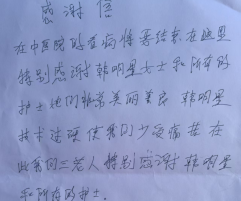 感谢信
在中医院的查病将等结束在这里
特别感谢韩明星女士和所有的
护士他们非常美丽美启 韩明星
技术过硬使我们少受痛苦 在
此我们三老人特别感谢韩明星
和所有的护士.